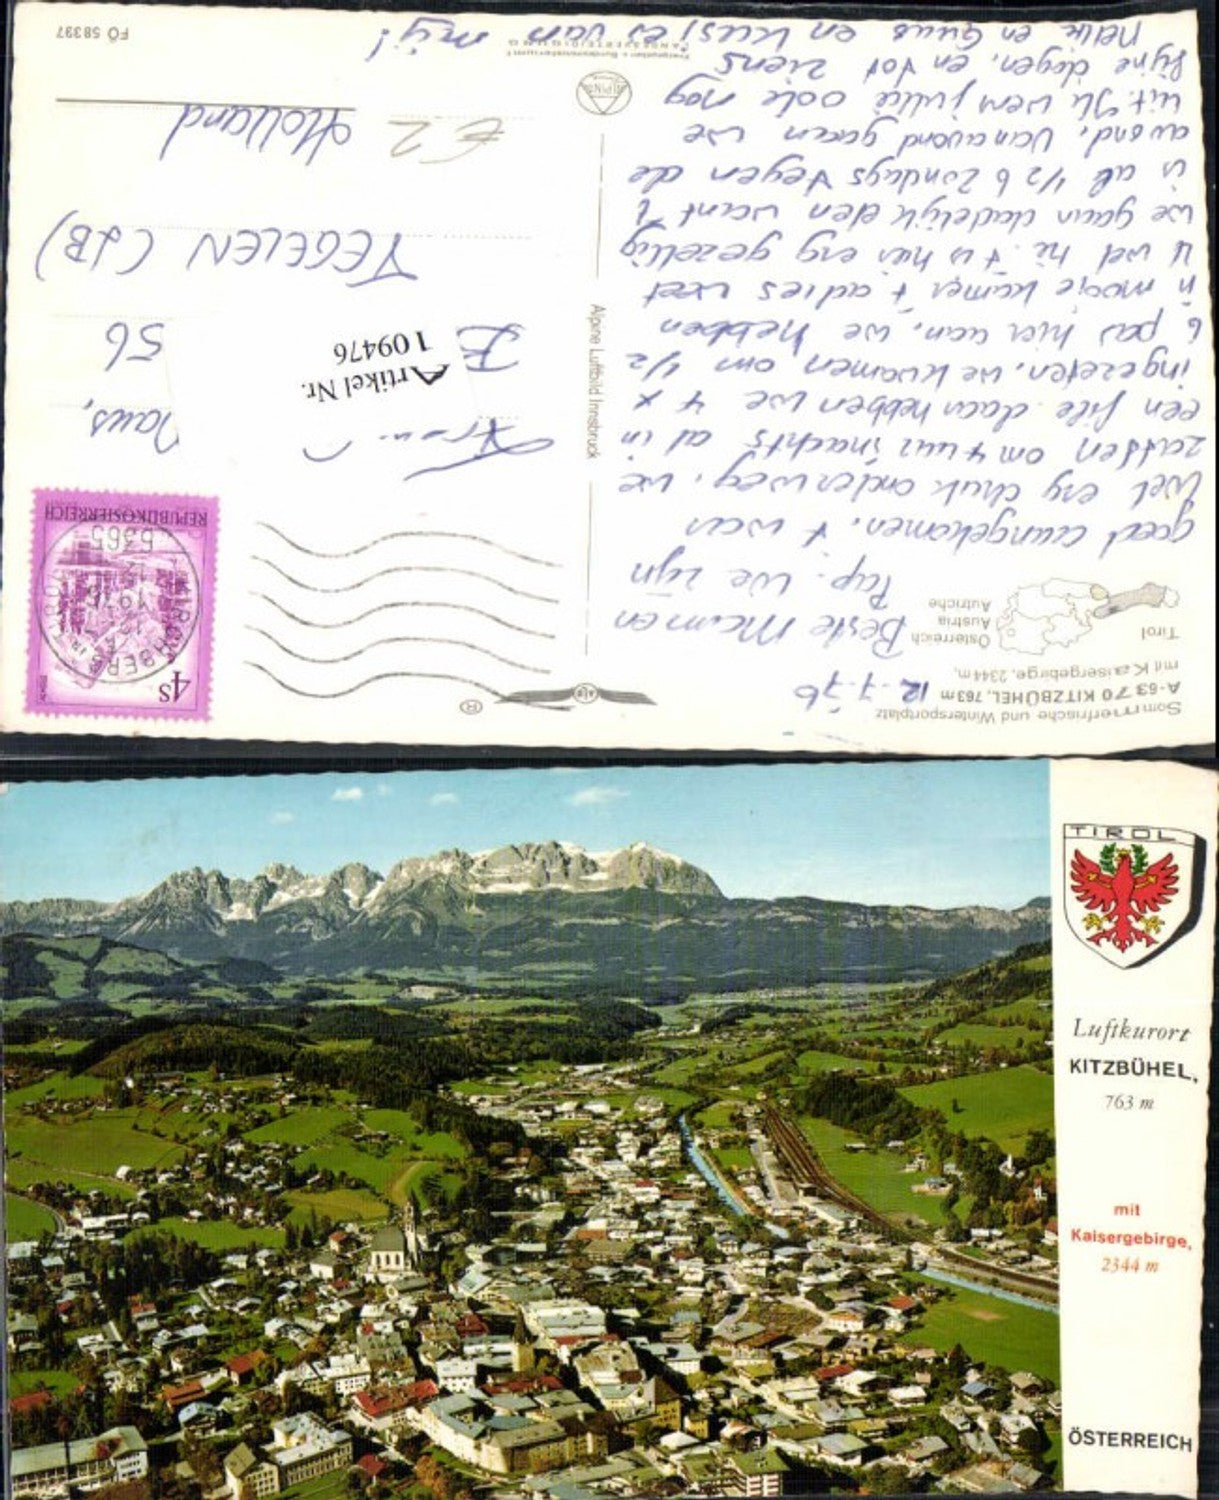 Sommerfrische und Wintersportplatz
A-6370 KITZBÜHEL, 763 m
mit Kaisergebirge, 2344 m,
Tirol
Österreich
Austria
Autriche
12-7-76
Beste Mamen
Pap. We zijn
goed aangekomen, t was
Wel erg druk onderweg, we
zatten om 4 uur snachts al in
een file daar hebben we 4 x
ingezeten, we kwamen om 1/2
6 pas hier aan, we hebben
n mooie kamer t adres weet
u wel hè. t is hier erg gezellig
we gaan dadelijk eten want t
is al 1/2 6 Zondags tegen de
avond, Vanavond gaan we
uit. Nu wens jullie ook nog
fijne dagen, en tot ziens
en kusjes van mij!
Alpine Luftbild Innsbruck
ALPINE
LANDESVERTEIDIGUNG
REPUBLIK ÖSTERREICH
4 S
6365
Artikel Nr.
1 09476
56
TEGELEN (LB)
Holland
€ 2
FÖ 58397
TIROL
Luftkurort
KITZBÜHEL,
763 m
mit
Kaisergebirge,
2344 m
ÖSTERREICH